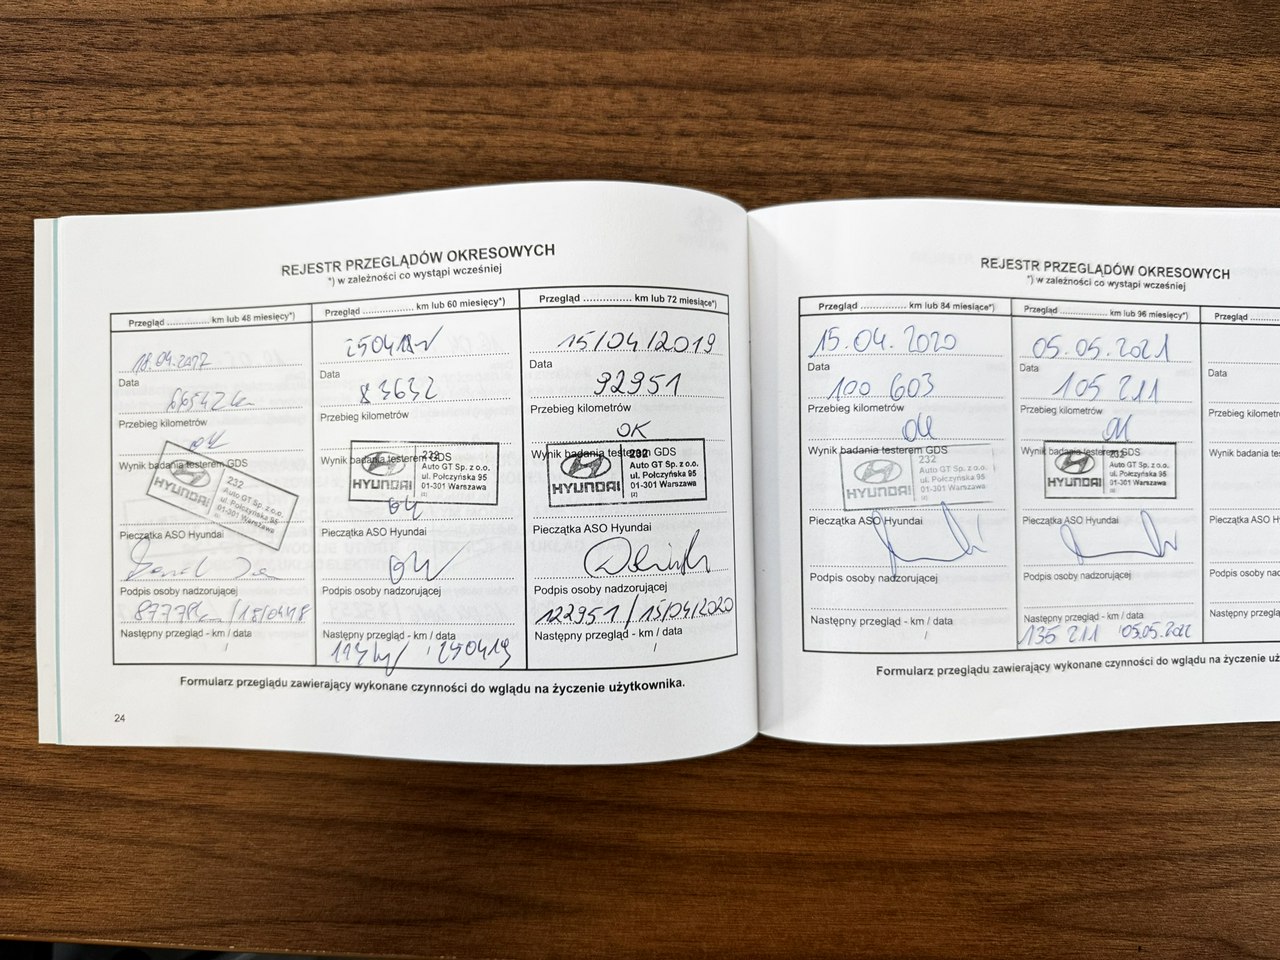 REJESTR PRZEGLĄDÓW OKRESOWYCH
*) w zależności co wystąpi wcześniej
Przegląd .............. km lub 48 miesięcy*)
Data
Przebieg kilometrów
OK
Wynik badania testerem GDS
HYUNDAI
232
Auto GT Sp. z o.o.
ul. Połczyńska 95
01-301 Warszawa
Pieczątka ASO Hyundai
Podpis osoby nadzorującej
/18/04/18
Następny przegląd - km / data
/
Przegląd .............. km lub 60 miesięcy*)
Data
83632
Przebieg kilometrów
Wynik badania testerem GDS
HYUNDAI
232
Auto GT Sp. z o.o.
ul. Połczyńska 95
01-301 Warszawa
(2)
OK
Pieczątka ASO Hyundai
Podpis osoby nadzorującej
Następny przegląd - km / data
250419
Przegląd .............. km lub 72 miesiące*)
15/04/2019
Data
92951
Przebieg kilometrów
OK
Wynik badania testerem GDS
HYUNDAI
232
Auto GT Sp. z o.o.
ul. Połczyńska 95
01-301 Warszawa
(2)
Pieczątka ASO Hyundai
Podpis osoby nadzorującej
122951/15/04/2020
Następny przegląd - km / data
/
Formularz przeglądu zawierający wykonane czynności do wglądu na życzenie użytkownika.
24
REJESTR PRZEGLĄDÓW OKRESOWYCH
*) w zależności co wystąpi wcześniej
Przegląd .............. km lub 84 miesiące*)
15.04.2020
Data
100 603
Przebieg kilometrów
OK
Wynik badania testerem GDS
HYUNDAI
232
Auto GT Sp. z o.o.
ul. Połczyńska 95
01-301 Warszawa
(2)
Pieczątka ASO Hyundai
Podpis osoby nadzorującej
Następny przegląd - km / data
/
Przegląd .............. km lub 96 miesięcy*)
05.05.2021
Data
105 211
Przebieg kilometrów
OK
Wynik badania testerem GDS
HYUNDAI
232
Auto GT Sp. z o.o.
ul. Połczyńska 95
01-301 Warszawa
(2)
Pieczątka ASO Hyundai
Podpis osoby nadzorującej
Następny przegląd - km / data
135 211 05.05.2022
Przegląd
Data
Przebieg kilometró
Wynik badania test
Pieczątka ASO Hyu
Podpis osoby nadz
Następny przegląd
Formularz przeglądu zawierający wykonane czynności do wglądu na życzenie uż